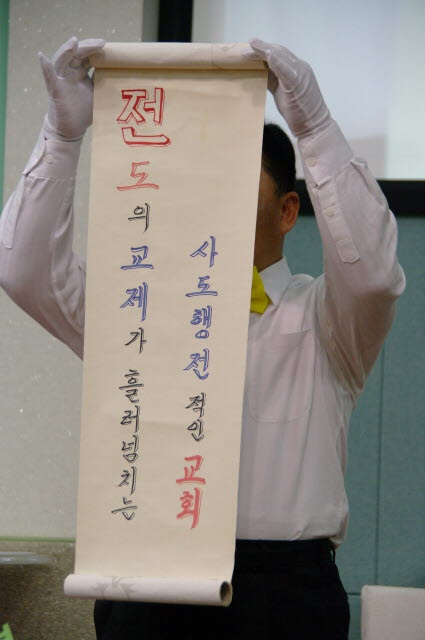 전도의 교제가 흘러넘치는
사도행전적인 교회